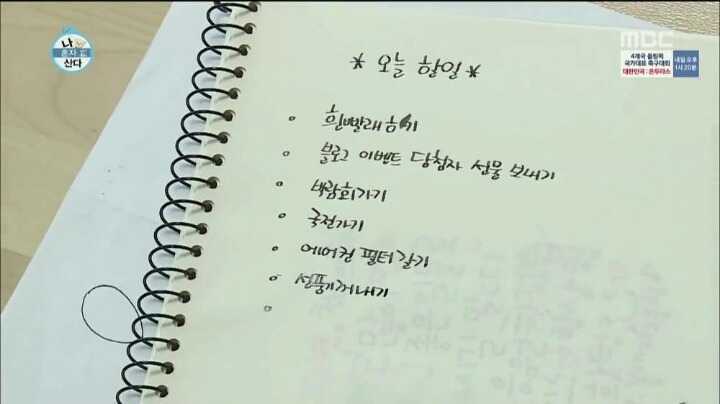 나
혼자
산다
MBC
4개국 올림픽
국가대표 축구대회
대한민국 : 온두라스
내일 오후
1시 20분
* 오늘 할일 *
흰빨래하기
블로그 이벤트 당첨자 선물 보내기
박람회가기
국전가기
에어컨 필터갈기
선풍기꺼내기